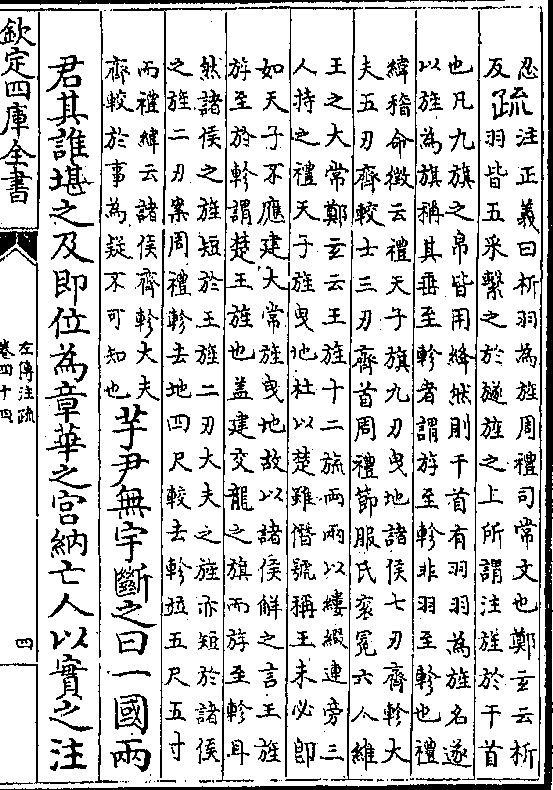 忍
反疏注正義曰析羽為旌周禮司常文也鄭玄云析
羽皆五采繫之於䍁旌之上所謂注旄於干首
也凡九旗之帛皆用絳然則干首有羽羽為旌名遂
以旌為旗稱其垂至軫者謂斿至軫非羽至軫也禮
緯稽命徴云禮天子旗九刃曳地諸侯七刃齊軫大
夫五刃齊較士三刃齊首周禮節服氏衮冕六人維
王之大常鄭玄云王旌十二旒兩兩以縷綴連旁三
人持之禮天子旌曳地杜以楚雖僭號稱王未必即
如天子不應建大常旌曳地故以諸侯解之言王旌
斿至於軫謂楚王旌也蓋建交龍之旗而斿至軫耳
然諸侯之旌短於王旌二刃大夫之旌亦短於諸侯
之旌二刃案周禮軫去地四尺較去軫並五尺五寸
而禮緯云諸侯齊軫大夫
齊較於事為疑不可知也芋尹無宇斷之曰一國兩
君其誰堪之及即位為章華之宮納亡人以實之注
欽定四庫全書
左傳注疏
卷四十四
四